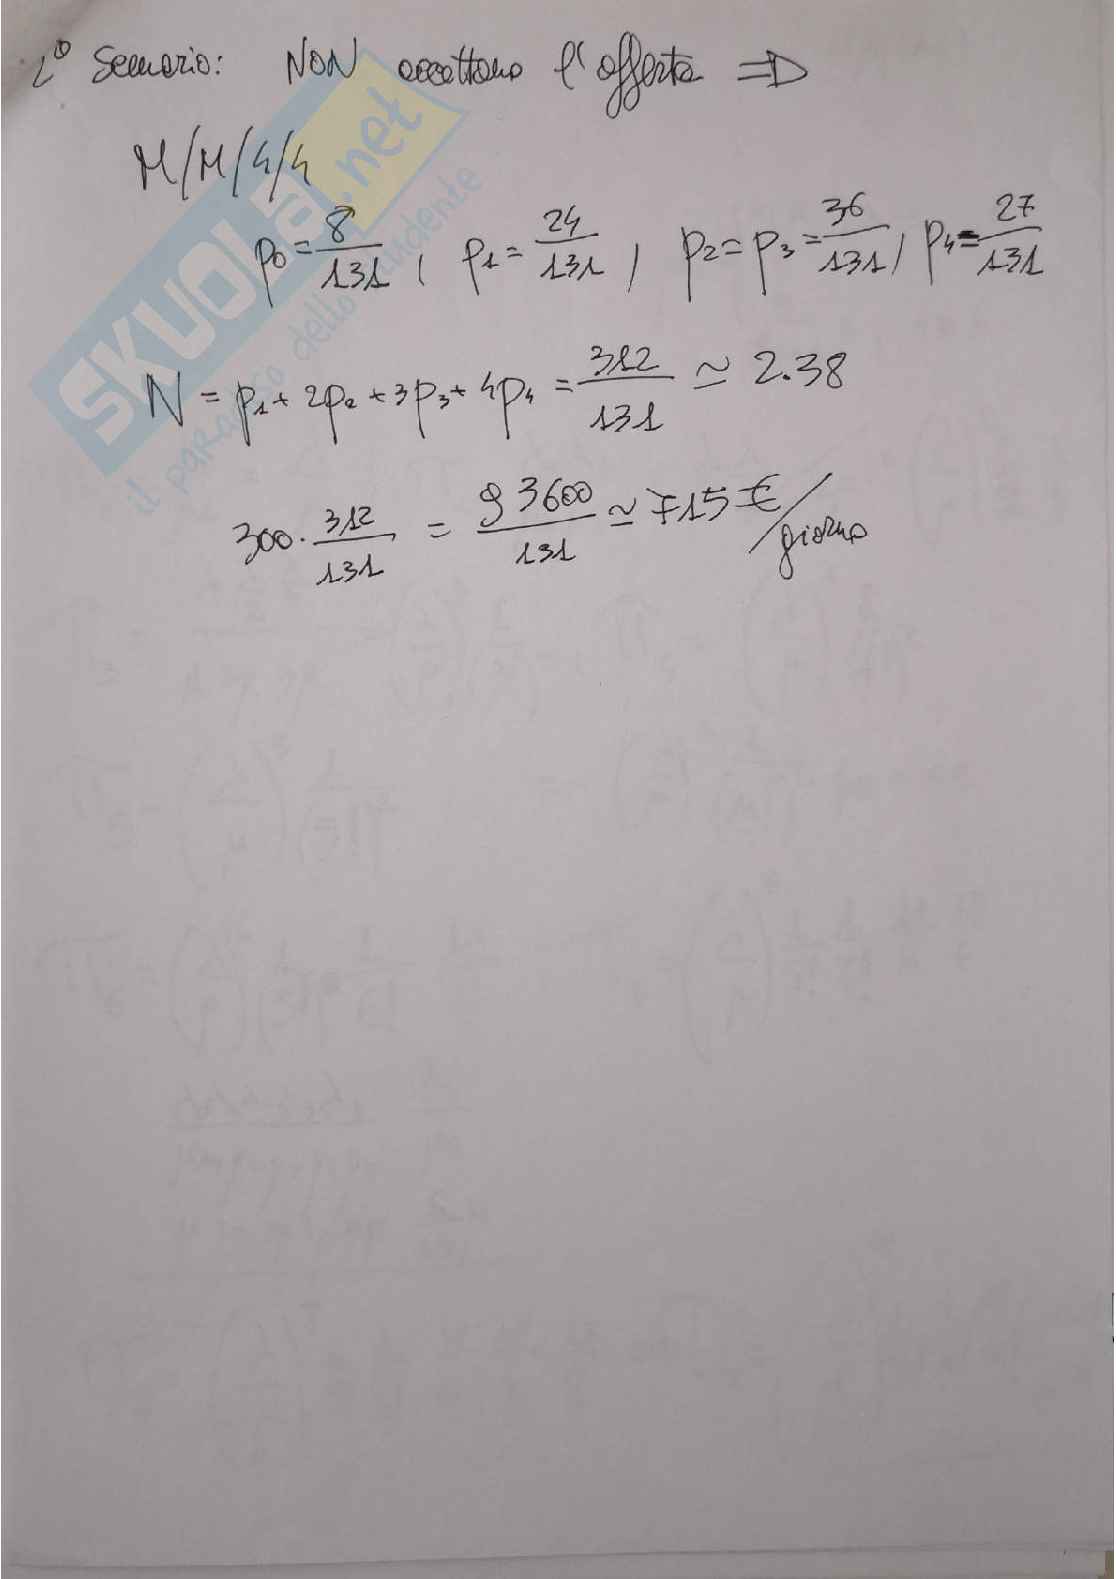 2° Scenario: NON accettano l'offerta =>
M/M/4/4
p0 = 8/131 , p1 = 24/131 , p2 = p3 = 36/131 , p4 = 27/131
N = p1 + 2p2 + 3p3 + 4p4 = 312/131 ≃ 2.38
300 · 312/131 = 93600/131 ≃ 715 €/giorno
SKUOLa.net
il paradiso dello studente